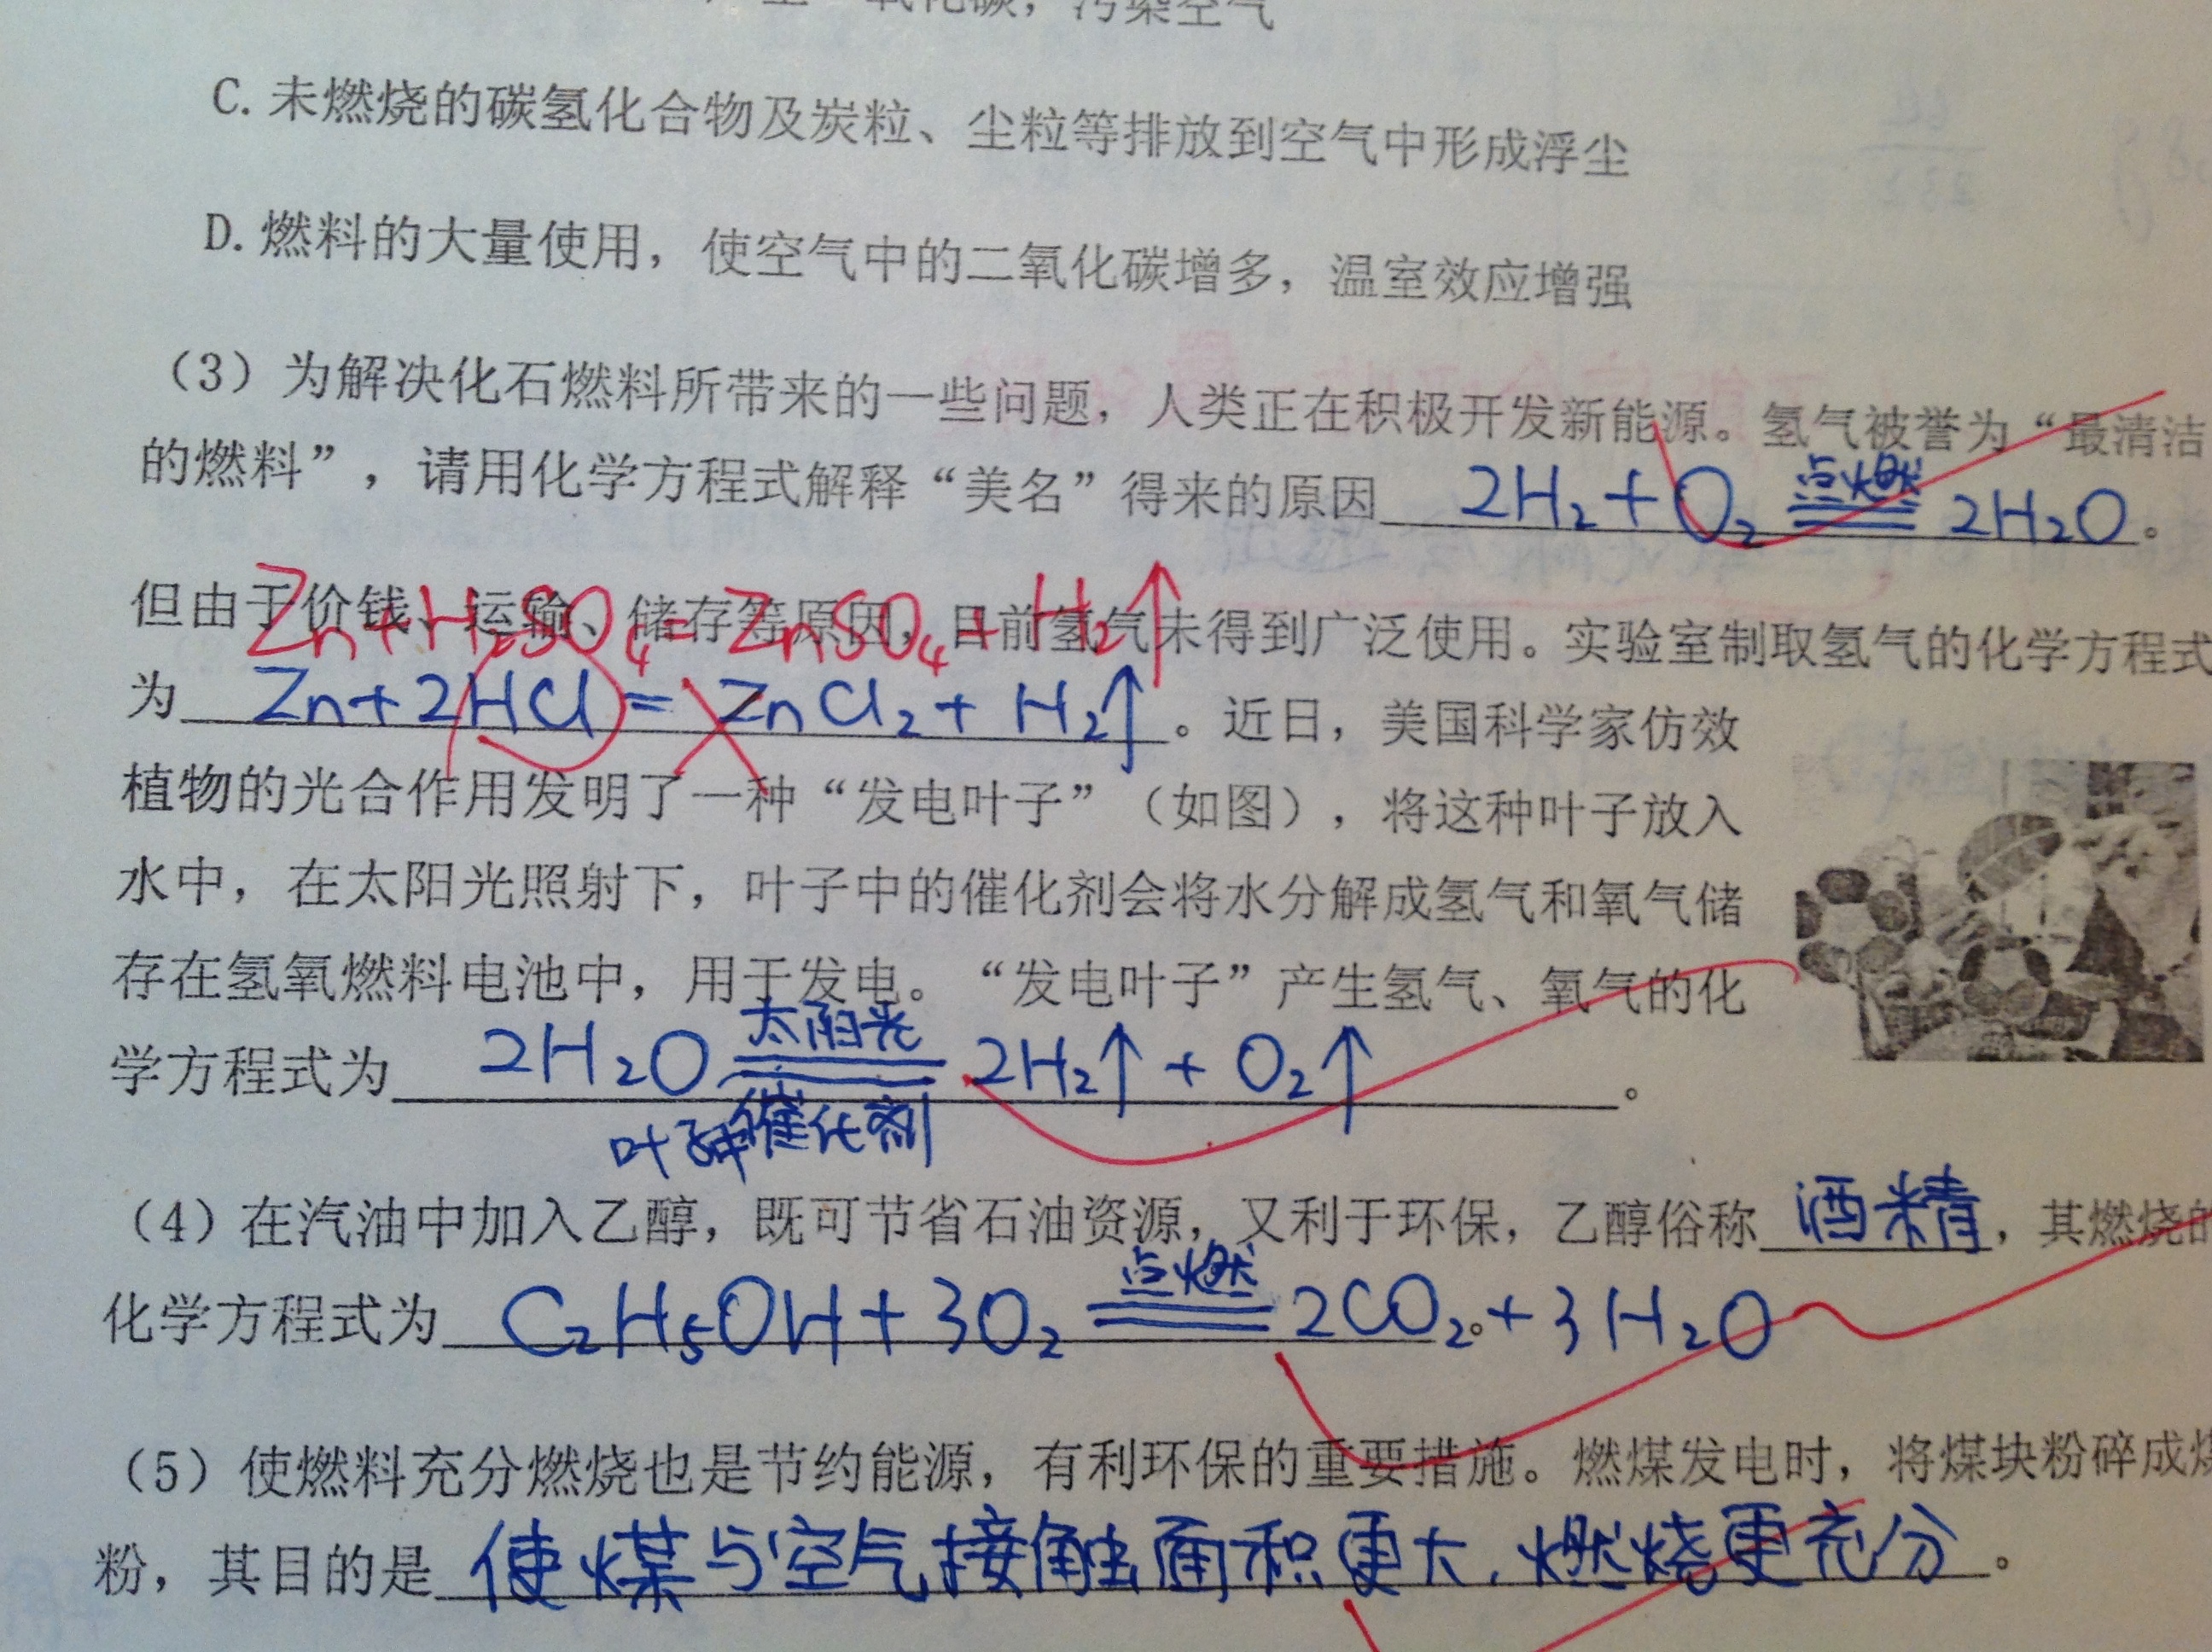 氧化碳，污染空气
C. 未燃烧的碳氢化合物及炭粒、尘粒等排放到空气中形成浮尘
D. 燃料的大量使用，使空气中的二氧化碳增多，温室效应增强
（3）为解决化石燃料所带来的一些问题，人类正在积极开发新能源。氢气被誉为“最清洁
的燃料”，请用化学方程式解释“美名”得来的原因 2H₂+O₂ 点燃 2H₂O 。
Zn+H₂SO₄=ZnSO₄+H₂↑
但由于价钱、运输、储存等原因，目前氢气未得到广泛使用。实验室制取氢气的化学方程式
为 Zn+2HCl=ZnCl₂+H₂↑ 。近日，美国科学家仿效
植物的光合作用发明了一种“发电叶子”（如图），将这种叶子放入
水中，在太阳光照射下，叶子中的催化剂会将水分解成氢气和氧气储
存在氢氧燃料电池中，用于发电。“发电叶子”产生氢气、氧气的化
太阳光
学方程式为 2H₂O ═ 2H₂↑+O₂↑ 。
叶子中催化剂
（4）在汽油中加入乙醇，既可节省石油资源，又利于环保，乙醇俗称 酒精 ，其燃烧的
点燃
化学方程式为 C₂H₅OH+3O₂ ═ 2CO₂+3H₂O 。
（5）使燃料充分燃烧也是节约能源，有利环保的重要措施。燃煤发电时，将煤块粉碎成煤
粉，其目的是 使煤与空气接触面积更大，燃烧更充分 。